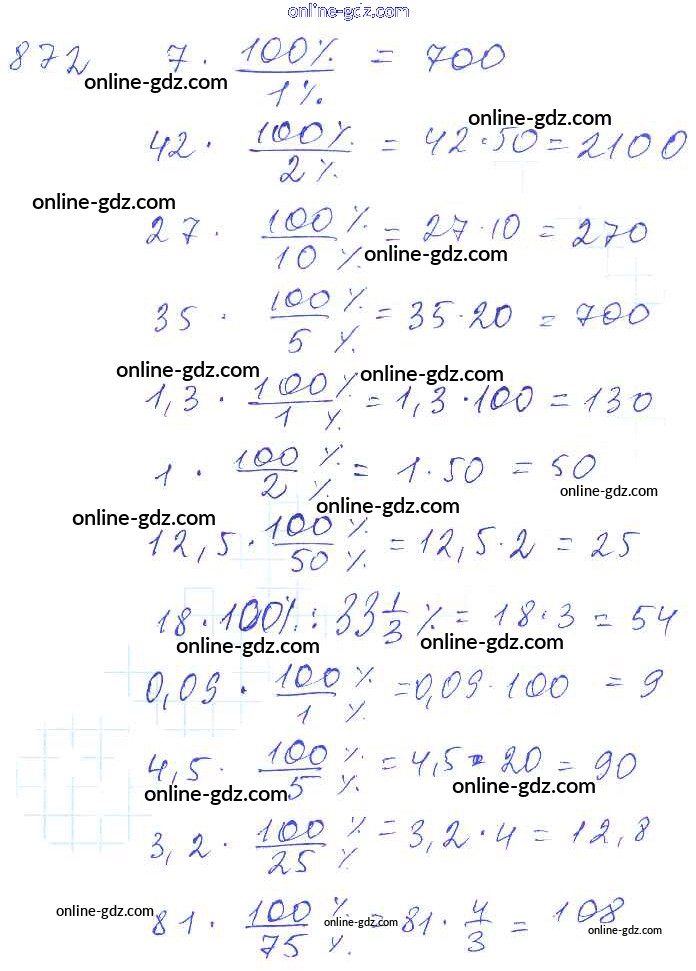 online-gdz.com
872 7 · 100% / 1% = 700
online-gdz.com
online-gdz.com
42 · 100% / 2% = 42·50 = 2100
online-gdz.com
27 · 100% / 10% = 27·10 = 270
online-gdz.com
35 · 100% / 5% = 35·20 = 700
online-gdz.com online-gdz.com
1,3 · 100% / 1% = 1,3·100 = 130
1 · 100% / 2% = 1·50 = 50
online-gdz.com
online-gdz.com online-gdz.com
12,5 · 100% / 50% = 12,5·2 = 25
18·100% : 33 1/3 % = 18·3 = 54
online-gdz.com online-gdz.com
0,09 · 100% / 1% = 0,09·100 = 9
4,5 · 100% / 5% = 4,5·20 = 90
online-gdz.com online-gdz.com
3,2 · 100% / 25% = 3,2·4 = 12,8
online-gdz.com online-gdz.com online-gdz.com
81 · 100% / 75% = 81 · 4/3 = 108